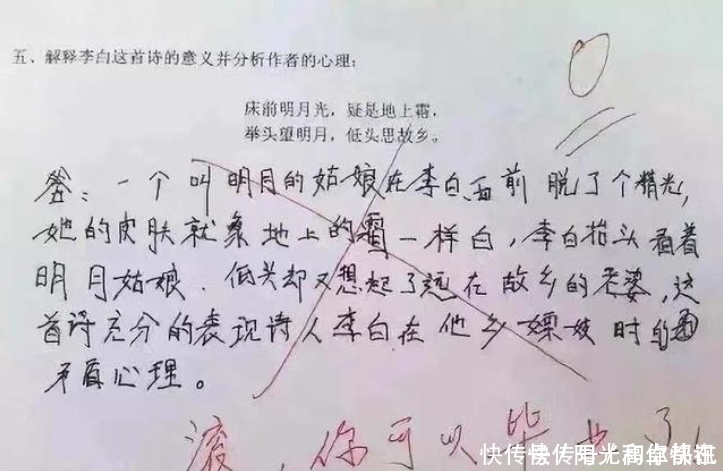 五、解释李白这首诗的意义并分析作者的心理：
床前明月光，疑是地上霜，
举头望明月，低头思故乡。
答：一个叫明月的姑娘在李白面前脱了个精光，
她的皮肤就象地上的霜一样白，李白抬头看着
明月姑娘．低头却又想起了远在故乡的老婆，这
首诗充分的表现诗人李白在他乡嫖妓时的
矛盾心理。
滚，你可以毕业了！
快传号传阳光